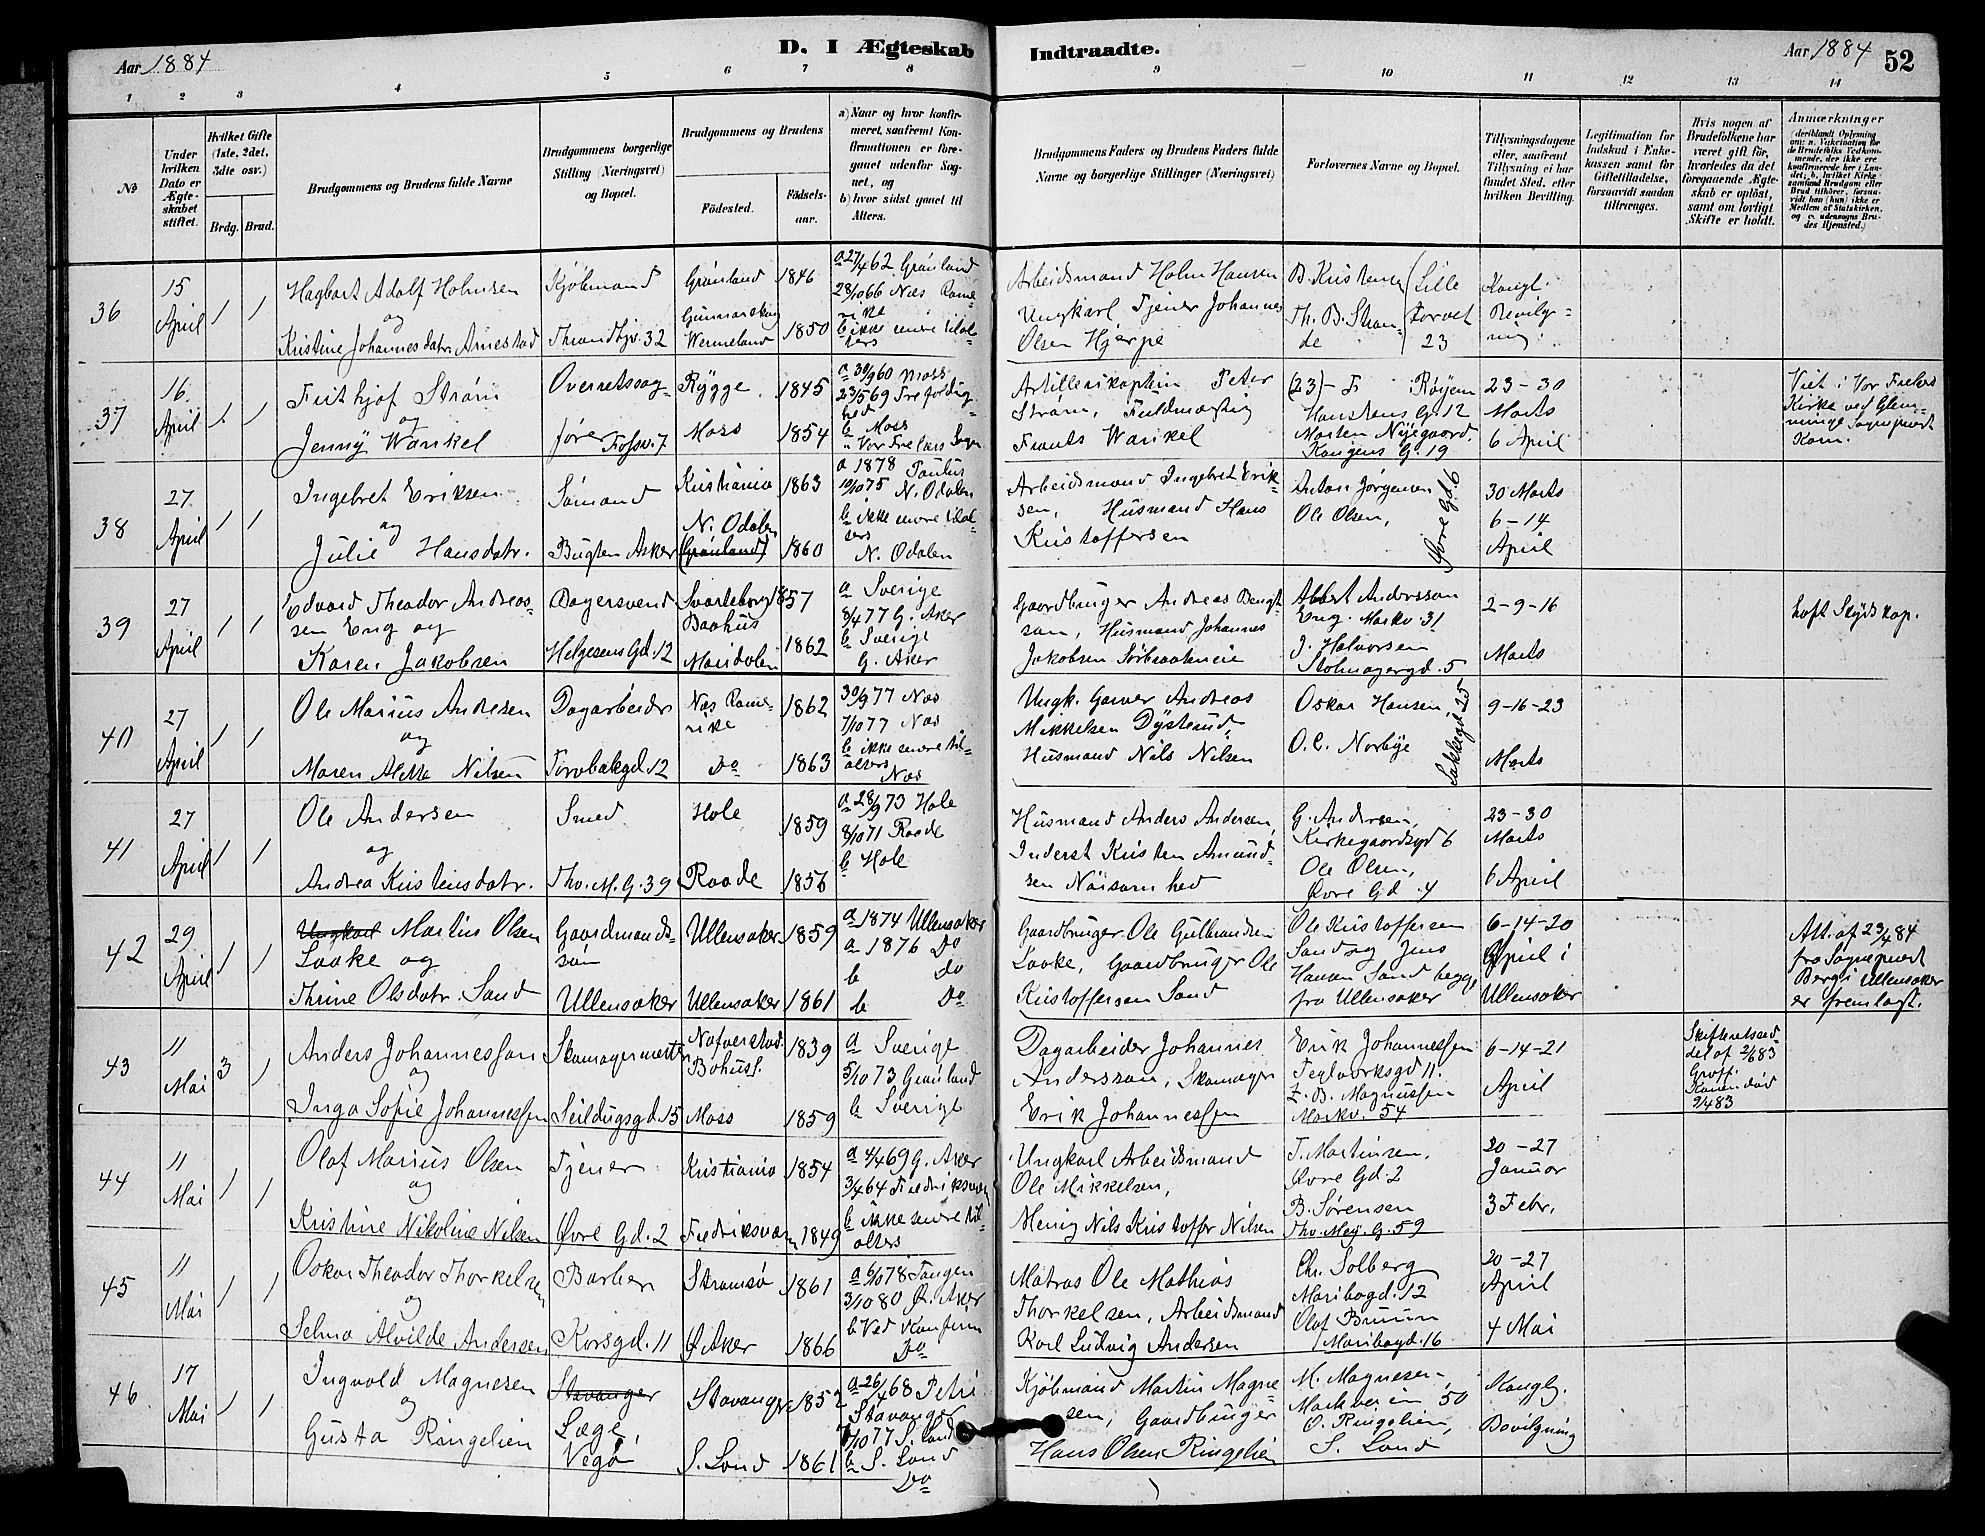 Aar 1884
D. I Ægteskab Indtraadte.
Aar 1884
52
1 2 3 4 5 6 7 8 9 10 11 12 13 14
No
Under hvilken Dato er Ægteskabet stiftet.
Hvilket Gifte (1ste, 2det, 3dte osv.)
Brdg. Brud.
Brudgommens og Brudens fulde Navne
Brudgommens borgerlige Stilling (Næringsvei) og Bopæl.
Brudgommens og Brudens
Fødested.
Fødsels-aar.
a) Naar og hvor konfirmeret, saafremt Konfirmationen er foregaaet udenfor Sognet, og
b) hvor sidst gaaet til Alters.
Brudgommens Faders og Brudens Faders fulde Navne og borgerlige Stillinger (Næringsvei)
Forlovernes Navne og Bopæl.
Tillysningsdagene eller, saafremt Tillysning ei har fundet Sted, efter hvilken Bevilling.
Legitimation for Indskud i Enkekassen samt for Giftetilladelse, forsaavidt saadan tiltrænges.
Hvis nogen af Brudefolkene har været gift før, hvorledes da det foregaaende Ægteskab er opløst, samt om lovligt Skifte er holdt.
Anmærkninger (deriblandt Oplysning om: a. Vakcination for de Brudefolks Vedkommende, der ikke ere konfirmerede her i Landet, b. hvilket Kirkesamfund Brudgom eller Brud tilhører, forsaavidt han (hun) ikke er Medlem af Statskirken, og c. udensogns Brudes Hjemsted.)
36
15 April
1 1
Hagbart Adolf Holmsen
og
Kristine Johannesdatr. Arnestad
Kjøbmand
Throndhjv. 32
Grønland 1846
Gunnarskog Wermeland 1850
a 27/4 62 Grønland
28/10 66 Næs Romerike
b ikke senere tilalters
Arbeidsmand Holm Hansen
Ungkarl Tjener Johannes
Olsen Hjerpe
B. Kristensen
Th. B. Strande
Lille Torvet 23
Kongl. Bevilgning.
37
16 April
1 1
Frithjof Strøm
og
Jenny Wankel
Overretssagfører
Fossv. 7
Rygge. 1845
Moss 1854
a 30/9 60 Moss
23/5 69 Trefoldighed
b Moss
" Vor Frelsers Sogn
Artillerikaptein Peter
Strøm, Fuldmægtig
Frants Wankel
Hanstens G. 12
Morten Nyegaard,
Kongens G. 19
23-30
Marts
6 April
Viet i Vor Frelsers
Kirke ved Glemminge Sogneprest
38
27 April
1 1
Ingebret Eriksen
og
Julie Hansdatr.
Sømand
Bugten Aker
Kristiania 1863
N. Odalen
(Grønland) 1860
a 1878 Paulus
10/10 75 N. Odalen
b ikke senere tilalters
N. Odalen
Arbeidsmand Ingebret Eriksen, Husmand Hans
Kristoffersen
Anton Jørgensen
Ole Olsen,
Øvre Gd. 6
30 Marts
6-14
April
39
27 April
1 1
Edvard Theodor Andreassen Eng og
Karen Jakobsen
Bagersvend
Helgesens Gd. 12
Svarteborg Baahus 1857
Maridalen 1862
a Sverige
8/4 77 G. Aker
b Sverige
G. Aker
Gaardbruger Andreas Bengtson, Husmand Johannes
Jakobsen Sørbraatmeie
Albert Anderssen
Eng. Markv. 31
J. Halvorsen
Stolmagergd. 5
2-9-16
Marts
40
27 April
1 1
Ole Marius Andresen
og
Maren Alette Nilsen
Dagarbeider
Torvbakgd. 12
Næs Romerike 1862
Do 1863
30/9 77 Næs
7/10 77 Næs
b ikke senere tilalters
Næs
Ungk. Garver Andreas
Mikkelsen Dysterud,
Husmand Nils Nilsen
Oskar Hansen,
O. C. Norbye
Lakkegd. 25
9-16-23
Marts
41
27 April
1 1
Ole Andersen
og
Andrea Kristensdatr.
Smed
Thv. M. G. 39
Hole 1859
Raade 1856
a 28/9 73 Hole
8/10 71 Raade
b Hole
Husmand Anders Andersen,
Inderst Kristen Amundsen Nøisomhed
G. Andersen,
Kirkegaardsgd 6
Ole Olsen,
Øvre Gd. 4
23-30
Marts
6 April
42
29 April
1 1
Ungkarl Martin Olsen
Laake og
Thrine Olsdatr. Sand
Gaardmandssøn
Ullensaker
Ullensaker 1859
Ullensaker 1861
a 1874 Ullensaker
a 1876 Do
b Do
b Do
Gaardbruger Ole Gulbrandsen
Laake, Gaardbruger Ole
Kristoffersen Sand
Ole Kristoffersen
Sand og Jens
Hansen Sand begge
fra Ullensaker
6-14-20
April i
Ullensaker
Att. af 23/4 84
fra Sogneprest
Berg i Ullensaker
er fremlagt.
43
11 Mai
3 1
Anders Johannessen
og
Inga Sofie Johannessen
Skomagermester
Seildugsgd. 15
Nafverstad. Bohusl. 1839
Moss 1859
a Sverige
5/10 73 Grønland
b Sverige
Dagarbeider Johannes
Andersson, Skomager
Erik Johannessen
Erik Johannessen
Teglverksgd 11.
B. Magnussen
Markv. 54
6-14-21
April
Skifteretsseddel af 2/6 83
Konen død
9/4 83
44
11 Mai
1 1
Olaf Marius Olsen
og
Kristine Nikoline Nilsen
Tjener
Øvre Gd. 2
Kristiania 1854
Fredriksværn 1849
a 4/4 69 G. Aker
3/4 64 Fredriksværn
b ikke senere tilalters
Ungkarl Arbeidsmand
Ole Mikkelsen,
Menig Nils Kristoffer Nilsen
T. Martinsen,
Øvre Gd. 2
B. Sørensen
Thv. Mey. G. 59
20-27
Januar
3 Febr.
45
11 Mai
1 1
Oskar Theodor Thorkelsen
og
Selma Alvilde Andersen
Barber
Korsgd. 11
Strømsø 1861
Ø. Aker 1866
a 6/10 78 Tangen
3/10 80 Ø. Aker
b Ved Konfirm
Do
Matros Ole Mathias
Thorkelsen, Arbeidsmand
Karl Ludvig Andersen
Chr. Solberg
Maribogd. 12
Olaf Bruun
Maribogd. 16
20-27
April
4 Mai
46
17 Mai
1 1
Ingvald Magnesen
og
Gusta Ringelien
Stavanger
Læge,
Vegø
Stavanger 1852
S. Land 1861
a 26/4 68 Petri
Stavanger
7/10 77 S. Land
b S. Land
Do
Kjøbmand Martin Magnesen, Gaardbruger
Hans Olsen Ringelien
M. Magnesen,
Markveien 50
O. Ringelien,
S. Land
Kongl.
Bevilgning